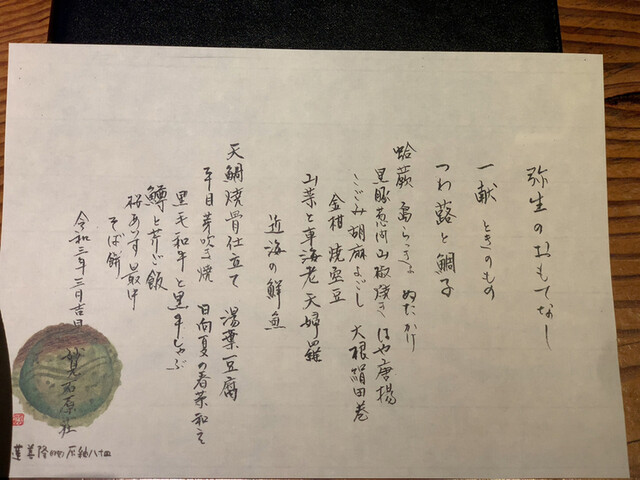 弥生のおもてなし
一献 ときのもの
つわ蕗と鯛子
蛤 蕨 島らっきょ ぬたかけ
黒豚葱間山椒焼き はや唐揚
こごみ胡麻よごし 大根絹田巻
金柑 焼空豆
山菜と車海老天婦羅
近海の鮮魚
天鯛焼骨仕立て 湯葉豆腐
平目芽吹き焼 日向夏の春菜和え
黒毛和牛と黒牛しゃぶ
鱒と芹ご飯
桜あいす最中
そば餅
令和三年三月吉日
妙見石原荘